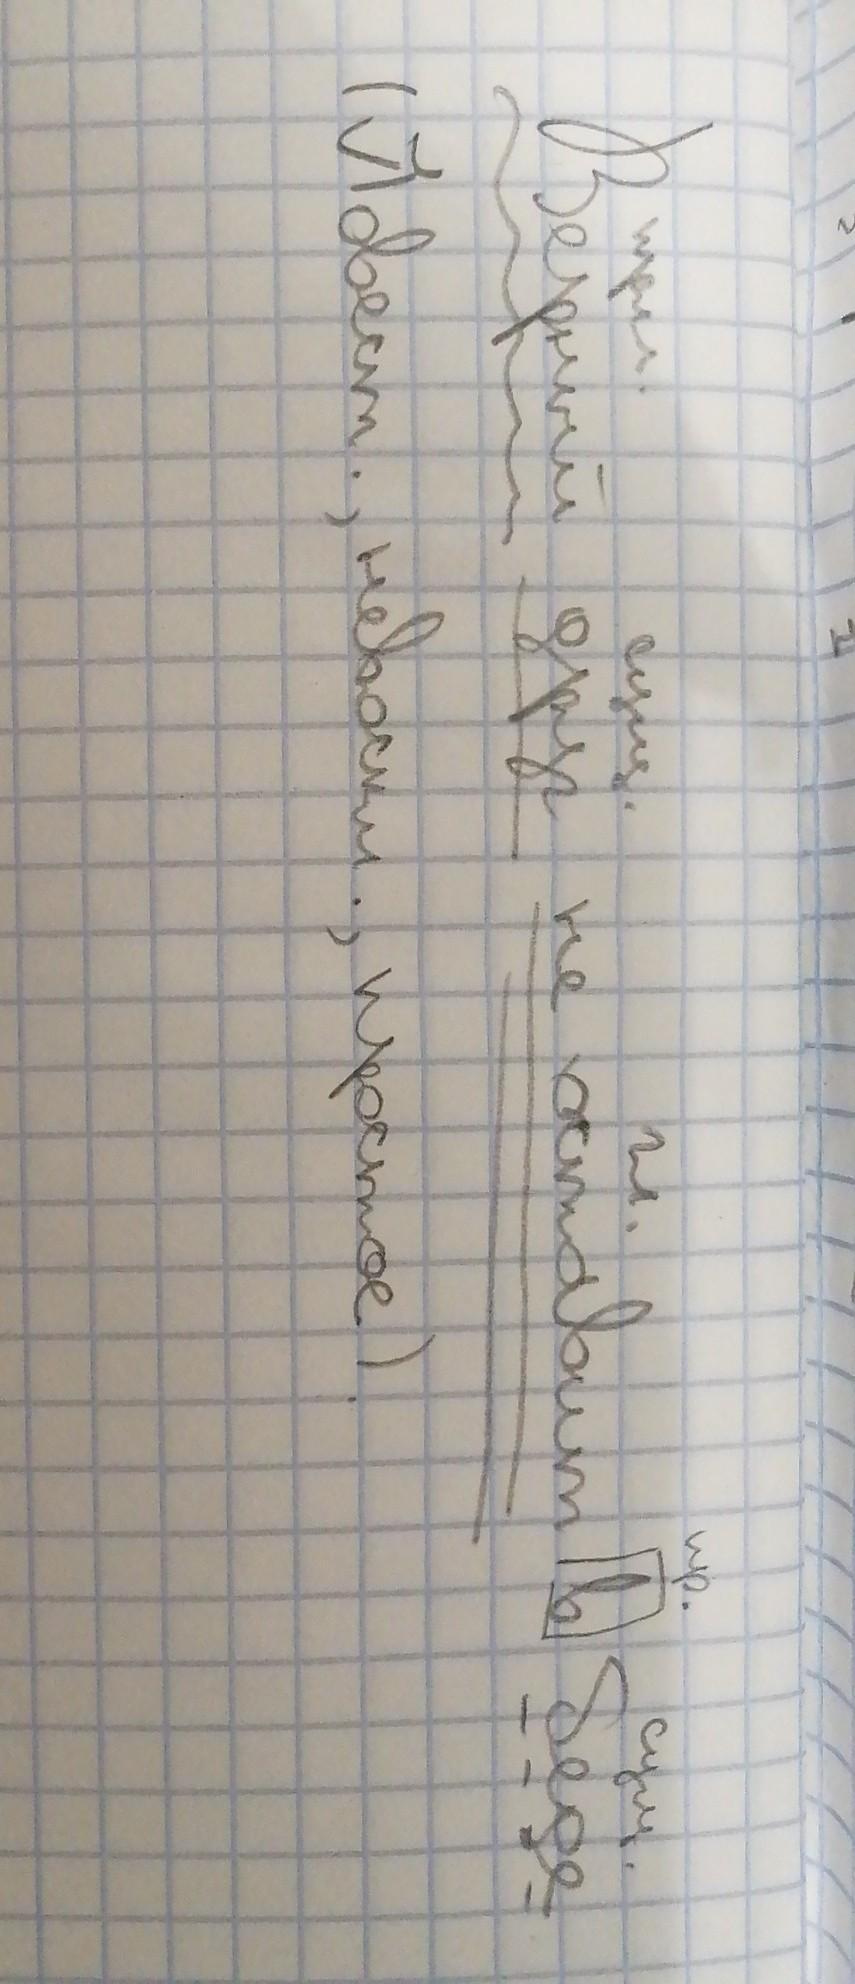 прил. сущ. гл. пр. сущ.
Верный друг не оставит в беде
(Повест., невоскл., простое).